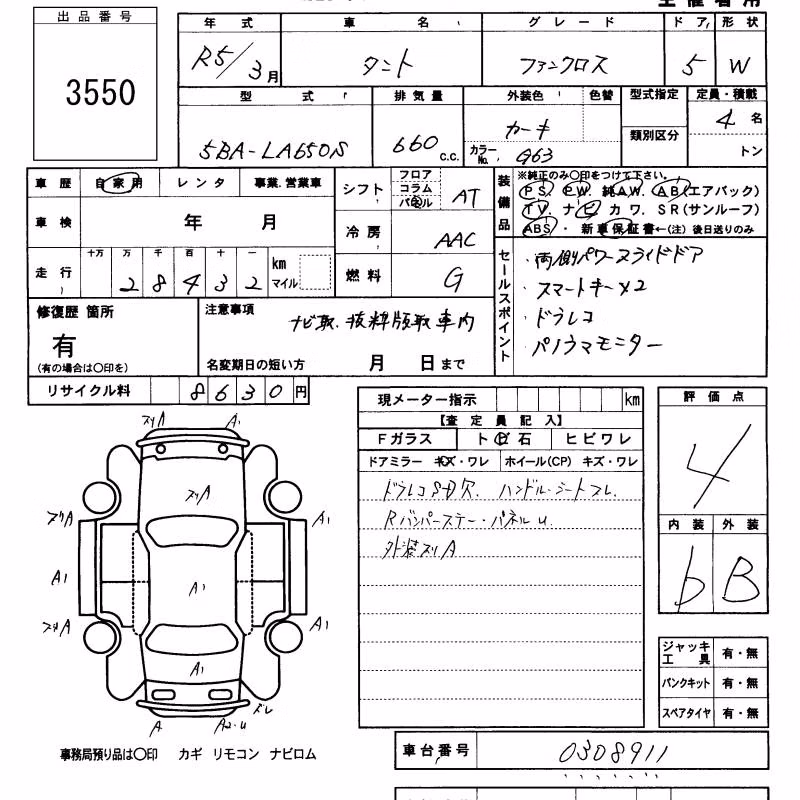 出品番号
3550
年式 車名 グレード ドア 形状
R5/3月 タント ファンクロス 5 W
型式 排気量 外装色 色替 型式指定 定員・積載
5BA-LA650S 660 c.c. カーキ 類別区分 4名
カラーNo. G63 トン
車歴 自家用 レンタ 事業.営業車
シフト フロア コラム パネル AT
装備品 ※純正のみ〇印をつけて下さい。
PS. PW. 純AW. AB(エアバック)
TV. ナビ カワ. SR(サンルーフ)
ABS・ 新車保証書←(注) 後日送りのみ
車検 年 月
冷房 AAC
走行 十万 万 千 百 十 一 km マイル
28432
燃料 G
セールスポイント
・両側パワースライドドア
・スマートキー×2
・ドラレコ
・パノラマモニター
修復歴 箇所
有
(有の場合は〇印を)
注意事項
ナビ取.抜粋版取車内
名変期日の短い方 月 日まで
リサイクル料 8630円
現メーター指示 km
【査定員記入】
Fガラス トビ石 ヒビワレ
ドアミラー キズ・ワレ ホイール(CP) キズ・ワレ
ドラレコSD欠. ハンドル・シートスレ.
Rバンパーステー・パネルU.
外装スリA
評価点
4
内装 外装
b B
ジャッキ工具 有・無
パンクキット 有・無
スペアタイヤ 有・無
スリA A1
スリA
スリA A1
A1 A1
スリA A1
A1
ドレ
A A2-U
事務局預り品は〇印 カギ リモコン ナビロム
車台番号 0308911